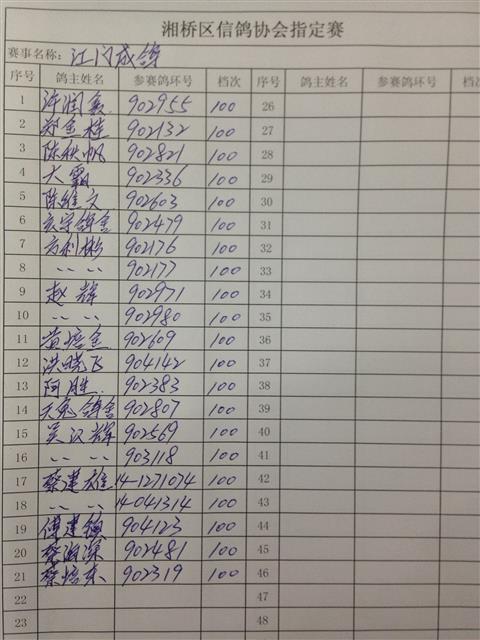 湘桥区信鸽协会指定赛
赛事名称: 江门成鸽
序号 鸽主姓名 参赛鸽环号 档次 序号 鸽主姓名 参赛鸽环号 档次
1 许润鑫 902955 100 26
2 郑金桂 902132 100 27
3 陈秋帆 902821 100 28
4 大飘 902336 100 29
5 陈维文 902603 100 30
6 玄宇鸽舍 902479 100 31
7 方利彬 902176 100 32
8 〃 〃 902177 100 33
9 赵辉 902971 100 34
10 〃 〃 902980 100 35
11 黄培金 902609 100 36
12 洪晓飞 904142 100 37
13 阿胜 902383 100 38
14 天兔鸽舍 902807 100 39
15 吴汉辉 902569 100 40
16 〃 〃 903118 100 41
17 蔡建雄 14-1271074 100 42
18 〃 〃 14-041314 100 43
19 傅建毅 904123 100 44
20 蔡海深 902481 100 45
21 蔡培东 902319 100 46
22 47
23 48